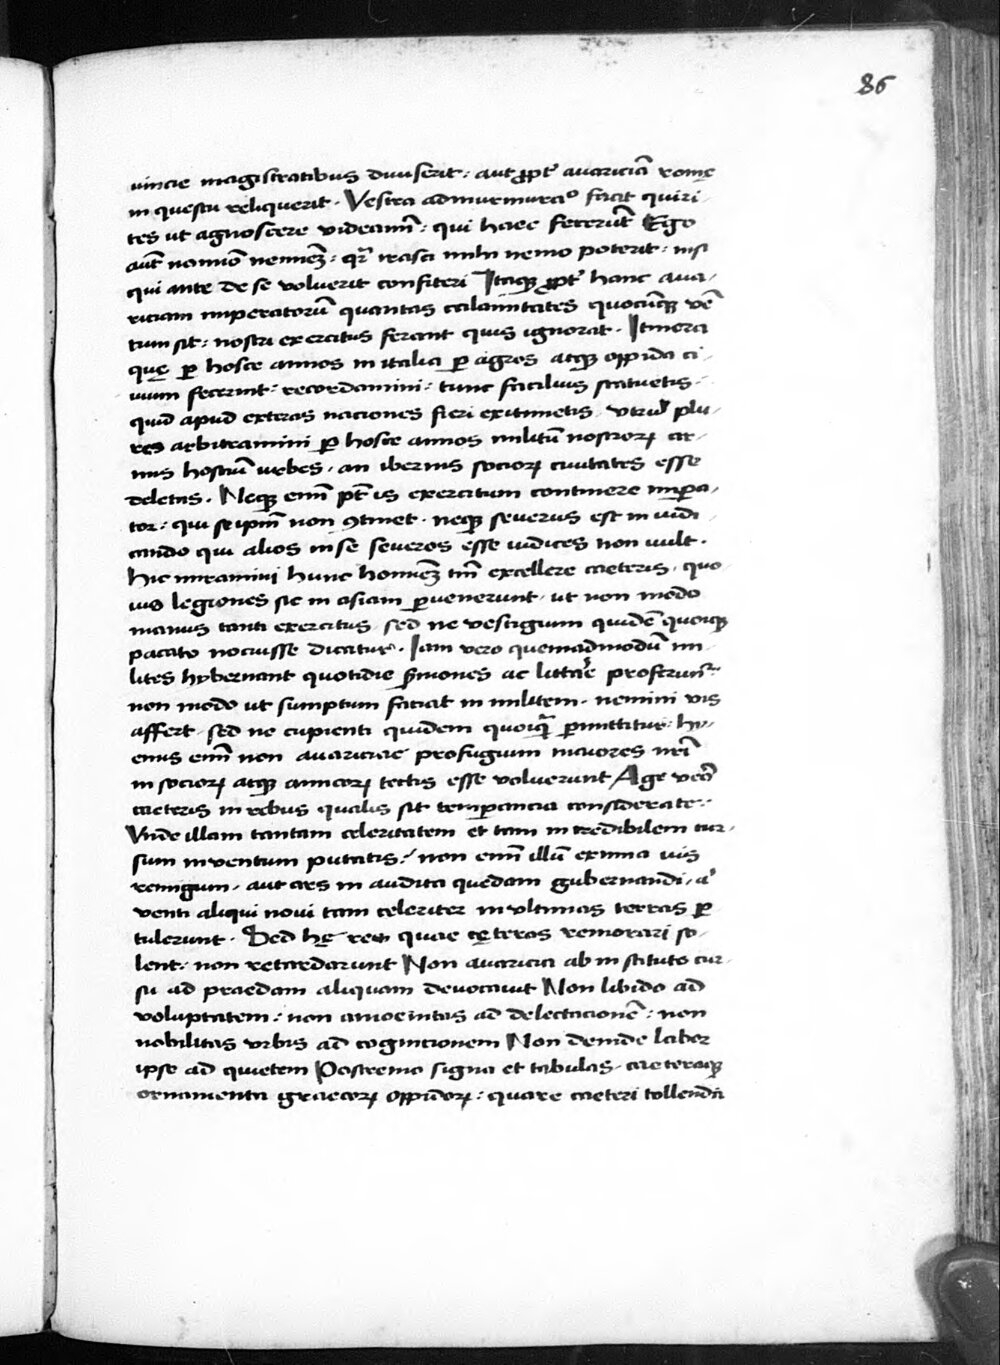 86
uincie magistratibus diuiserit: aut ꝓpt̉ auariciā romę
in questu reliquerit. Vestra admurmuracio facit quiri-
tes ut agnoscere videamī: qui haec fecerūt Ego
aūt nomīo nemineꝫ: qr̄ irasci mihi nemo poterit: nisi
qui ante de se voluerit confiteri Itaqꝫ ꝓpt̉ hanc aua-
riciam imperatorū quantas calamitates quocūqꝫ vē
tum sit: nostri exercitus ferant quis ignorat. Itinera
quę ꝑ hosce annos in italia ꝑ agros atqꝫ oppida ci-
uium fecerint: recordamini: tunc facilius statuetis
quid apud exteras naciones fieri existimetis, vtrū plu-
res arbitramini ꝑ hosce annos militū nostroꝝ ar-
mis hostiū urbes, an ibernis socioꝝ ciuitates esse
deletas. Neqꝫ enī pt̄ is exercitum continere imꝑa-
tor: qui se ipm̄ non ꝯtinet. neqꝫ severus est in iudi-
cando qui alios in se severos esse iudices non uult.
hic miramini hunc homineꝫ tm̄ excellere caeteris, quo-
ius legiones sic in asiam ꝑuenerunt, ut non modo
manus tanti exercitus, sed ne vestigium quidē quoiqꝫ
pacato nocuisse dicatur. Iam vero quemadmodū mi-
lites hybernant quotidie ẜmones ac litterę proferunt̉
non modo ut sumptum faciat in militem, nemini vis
affert, sed ne cupienti quidem quoiqꝫ̄ ꝑmittitur: hy-
emis enī non auariciae profugium maiores nrī
in socioꝝ atqꝫ amicoꝝ tectis esse voluerunt Age vero
caeteris in rebus qualis sit temꝑancia considerate:
Vnde illam tantam celeritatem et tam incredibilem cur-
sum inventum putatis: non enī illū eximia uis
remigum, aut ars in audita quedam gubernandi, aꝰ
venti aliqui novi tam celeriter in vltimas terras ꝑ
tulerunt. Sed hę res quae cęteros remorari so-
lent: non retardarunt Non auaricia ab in stituto cur-
su ad praedam aliquam deuocauit Non libido ad
voluptatem: non amoenitas ad delectacionē: non
nobilitas vrbis ad cognicionem Non denide labor
ipse ad quietem Postremo signa et tabulas, caeteraqꝫ
ornamenta graecoꝝ oppidoꝝ: quare caeteri tollenda